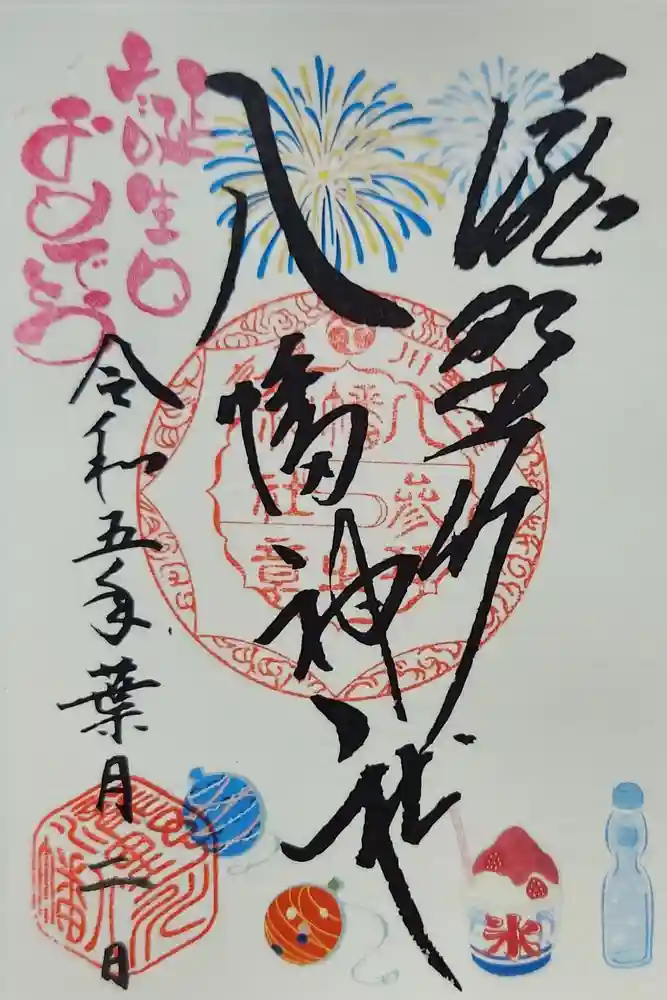 瀧野川
八幡神社
誕生日
おめでとう
令和五年葉月二日
氷